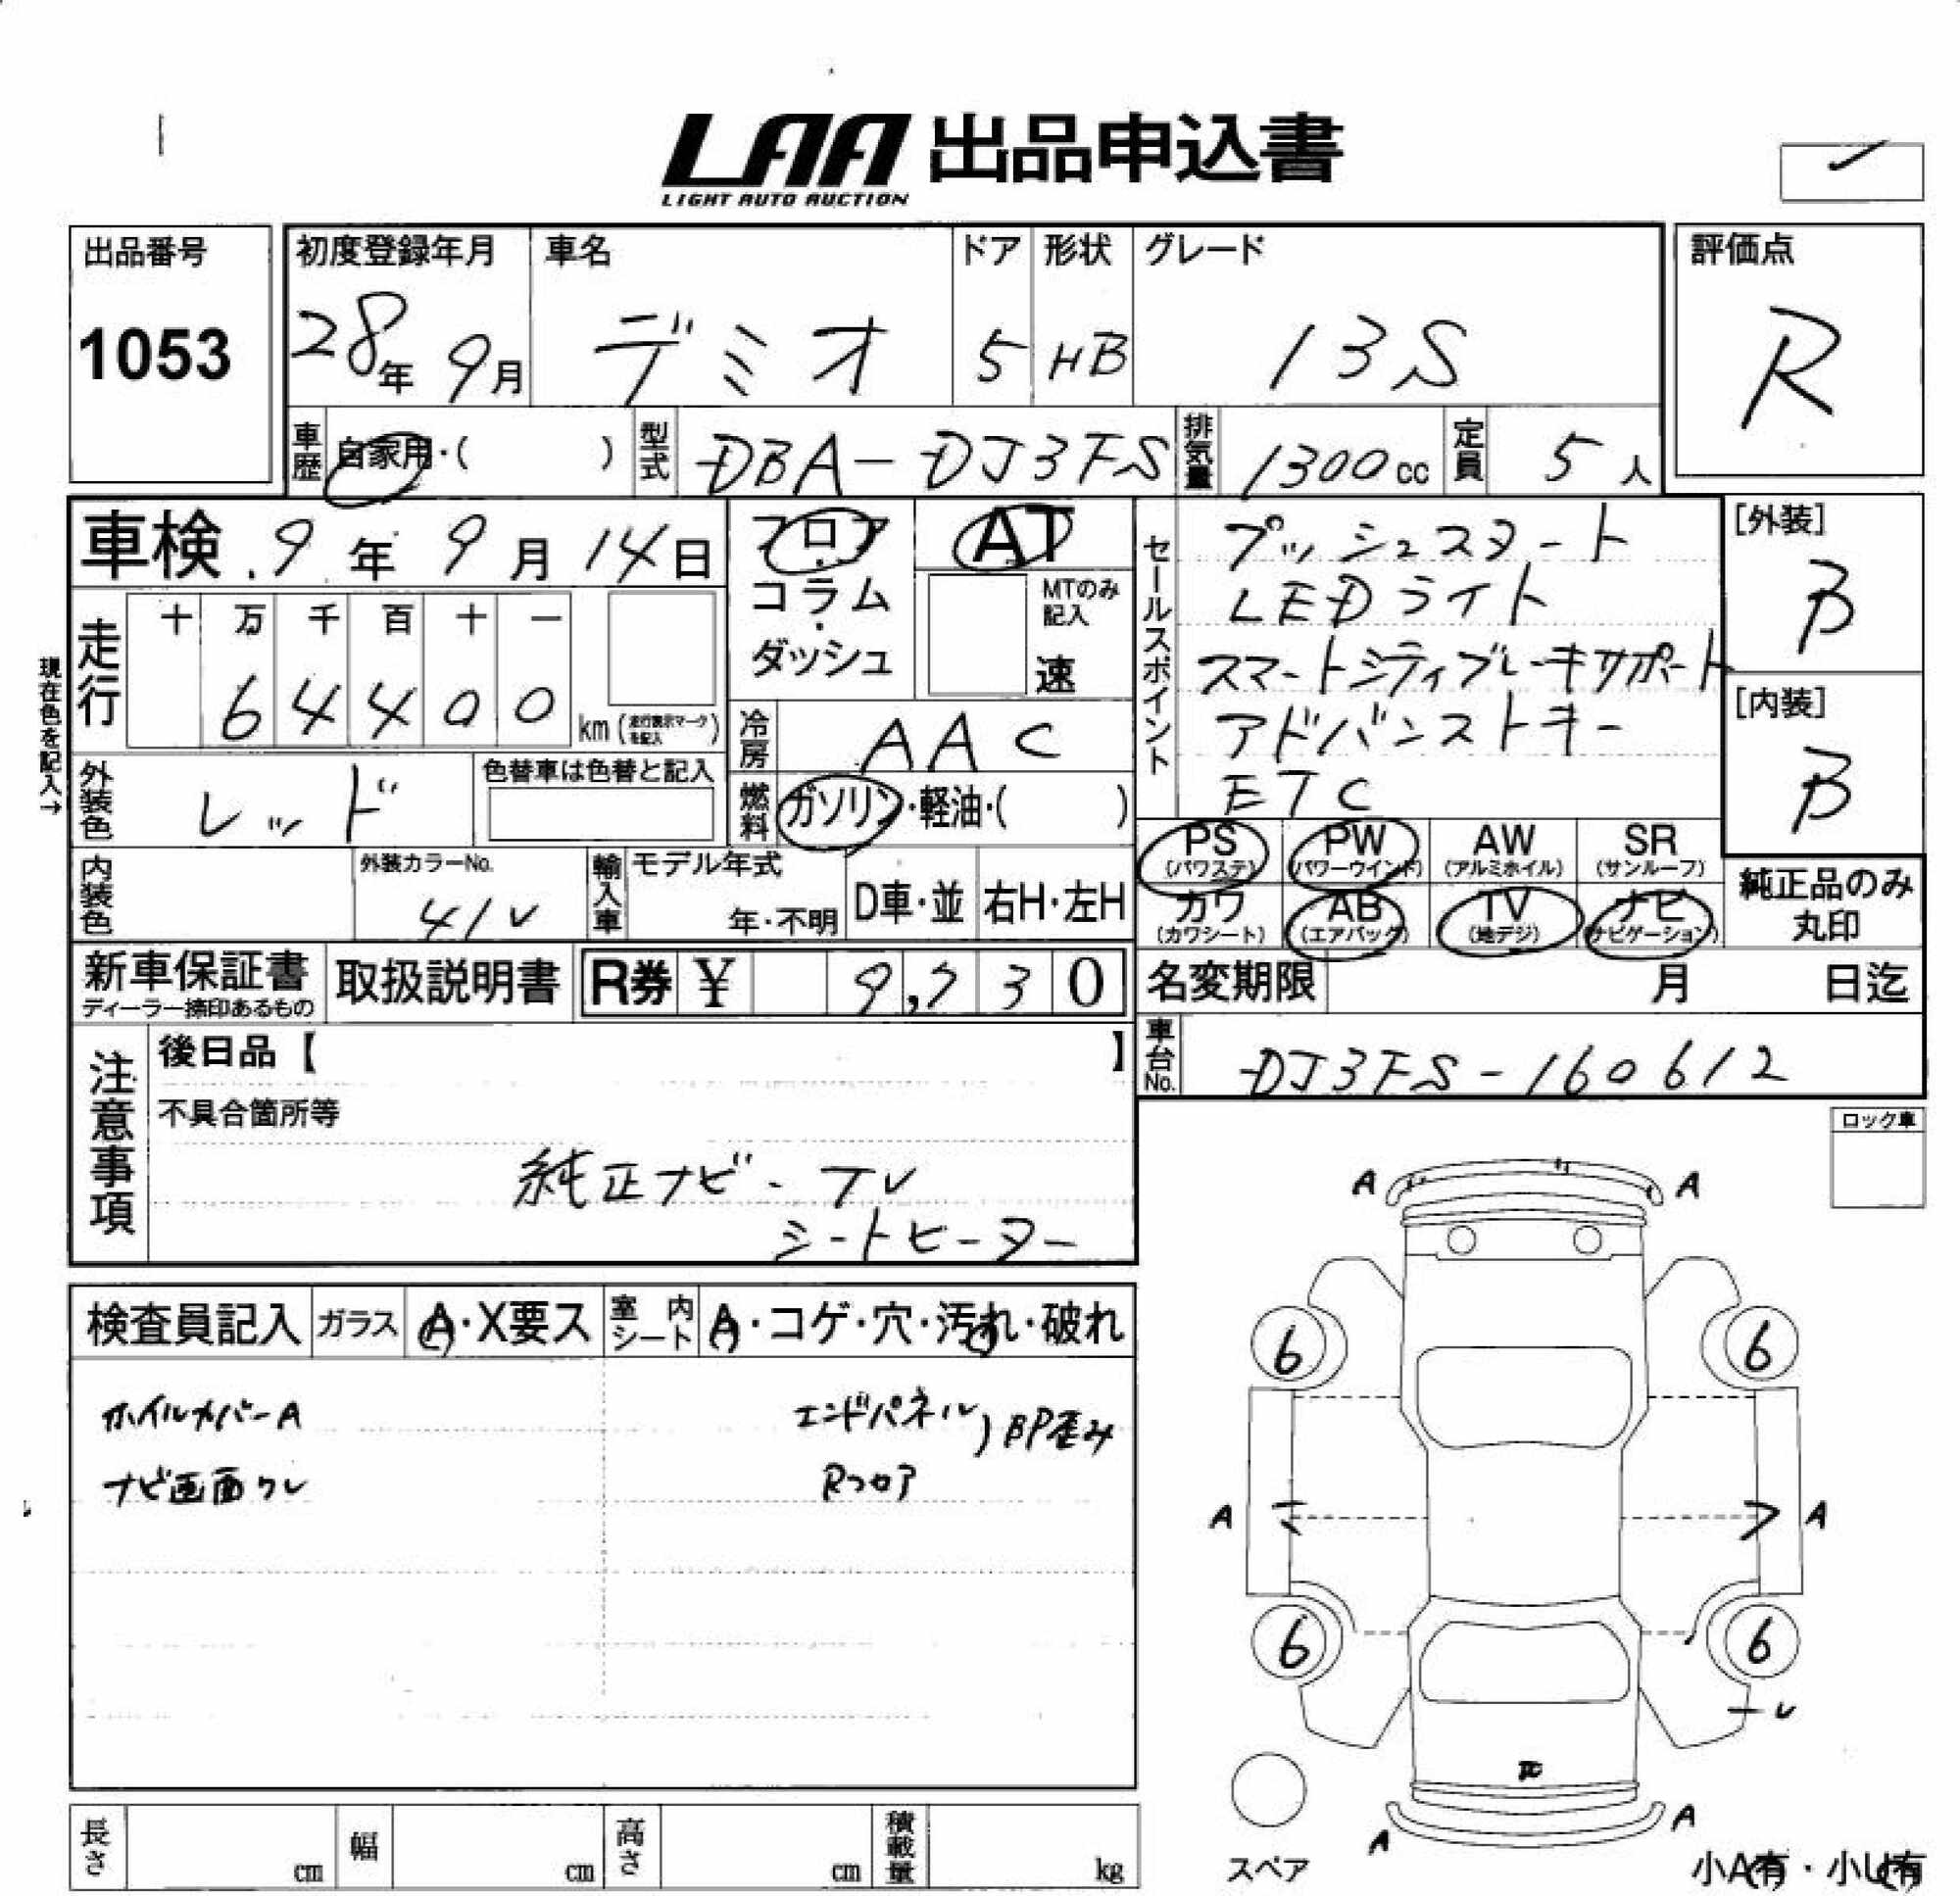 LAA 出品申込書
LIGHT AUTO AUCTION
出品番号
1053
初度登録年月
28年 9月
車名
デミオ
ドア
5
形状
HB
グレード
13S
評価点
R
車歴 自家用・( )
型式 DBA-DJ3FS
排気量 1300cc
定員 5人
車検 9年 9月 14日
現在色を記入→
走行
十 万 千 百 十 一
6 4 4 0 0
km (走行表示マークを記入)
フロア
・
コラム
・
ダッシュ
AT
MTのみ
記入
速
冷房 AAC
燃料 ガソリン・軽油・( )
外装色 レッド
色替車は色替と記入
内装色
外装カラーNo.
41V
輸入車 モデル年式
年・不明
D車・並
右H・左H
セールスポイント
プッシュスタート
LEDライト
スマートシティブレーキサポート
アドバンストキー
ETC
[外装]
B
[内装]
B
PS
(パワステ)
PW
(パワーウインド)
AW
(アルミホイル)
SR
(サンルーフ)
カワ
(カワシート)
AB
(エアバック)
TV
(地デジ)
ナビ
(ナビゲーション)
純正品のみ
丸印
新車保証書
ディーラー捺印あるもの
取扱説明書
R券 ¥ 9,730
名変期限 月 日迄
車台No. DJ3FS-160612
注意事項
後日品【 】
不具合箇所等
純正ナビ・TV
シートヒーター
ロック車
検査員記入
ガラス A・X要ス
室内シート A・コゲ・穴・汚れ・破れ
ホイルカバーA
ナビ画面ワレ
エンドパネル
Rフロア
)BP歪み
A
A
6
6
A
A
6
6
A
A
スペア
小A有・小U有
長さ cm
幅 cm
高さ cm
積載量 kg